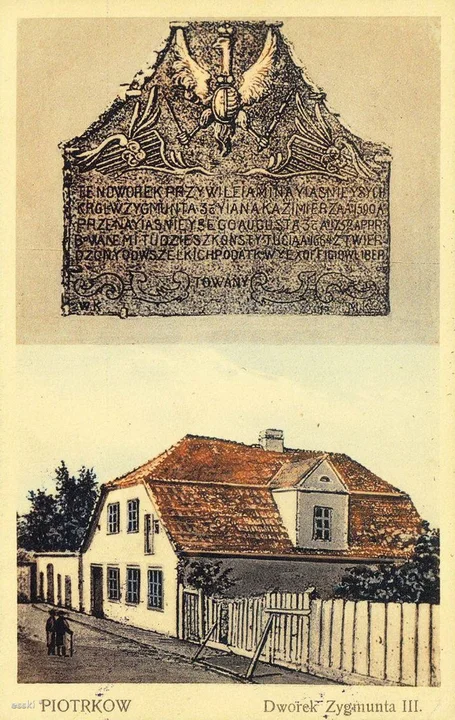 TEN DWOREK PRZYWILEIAMI NAYIAŚNIEYSYCH
KRÓLW ZYGMUNTA 3º Y IANA KAZIMIERZA A 1590 A
PRZE NAYIAŚNIEYSEGO AUGUSTA 3º
WANEMI TUDZIESZ KONSTYTUCIĄ A 1664 ZTWIER
DZONY OD WSZELKICH PODATKW Y EXOFF
TOWANY
W K
PIOTRKOW
Dworek Zygmunta III.